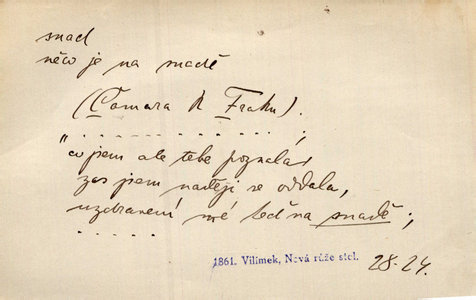 snad
něco je na snadě
(Čomara k Franku).
. . . . . . . . . . . . . ;
"co jsem ale tebe poznala,
zas jsem naději se oddala,
uzdravení mé teď na snadě;
. . . . .
1861. Vilímek, Nová růže stol.
28-24.